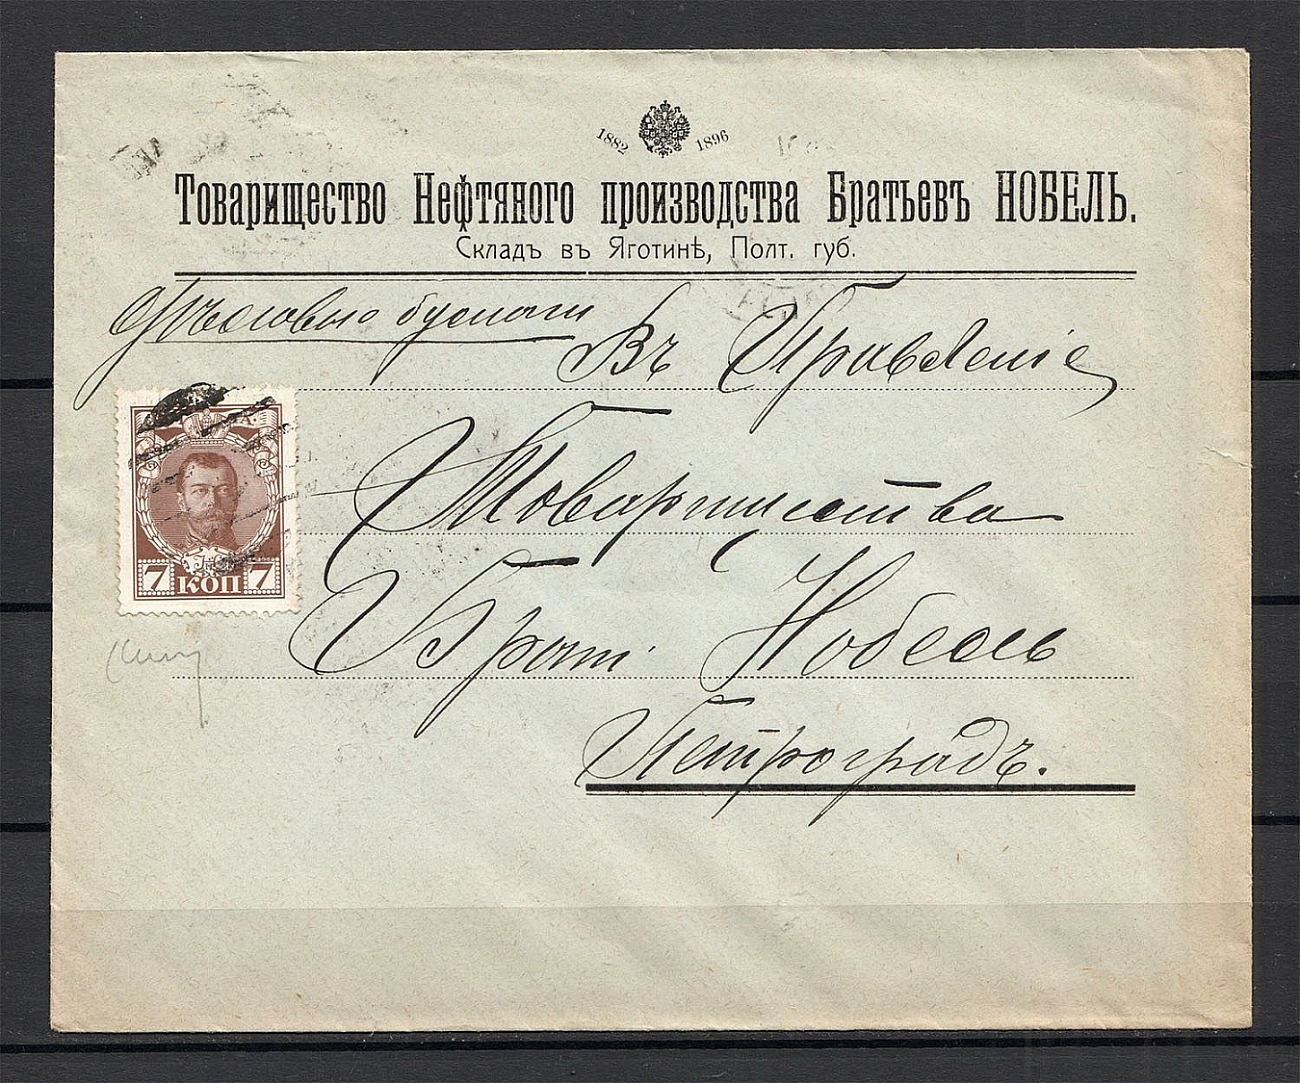 1882 1896
Товарищество Нефтяного производства Братьевъ НОБЕЛЬ.
Складъ въ Яготинѣ, Полт. губ.
бумаги
Въ Правленіе
Товарищества
Брат. Нобель
Петроградъ.
7 КОП 7